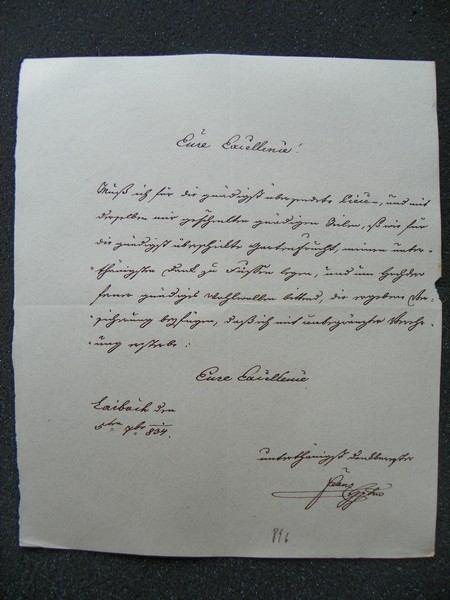 Eure Excellenz!
Muß ich für die gnädigst übersendete und mit
derselben mir gnädigen Zeilen, so wie für
die gnädigst überschickte Gartenfrucht, meinen unter-
thänigsten Dank zu Füssen legen, und um Hoch
ferner gnädiges Wohlwollen bittend, die ergebene Ver-
sicherung beyfügen, daß ich mit unbegränzter Vereh-
rung ersterbe:
Eure Excellenz
Laibach den
5ten 7br 834.
unterthänigst
Franz
896